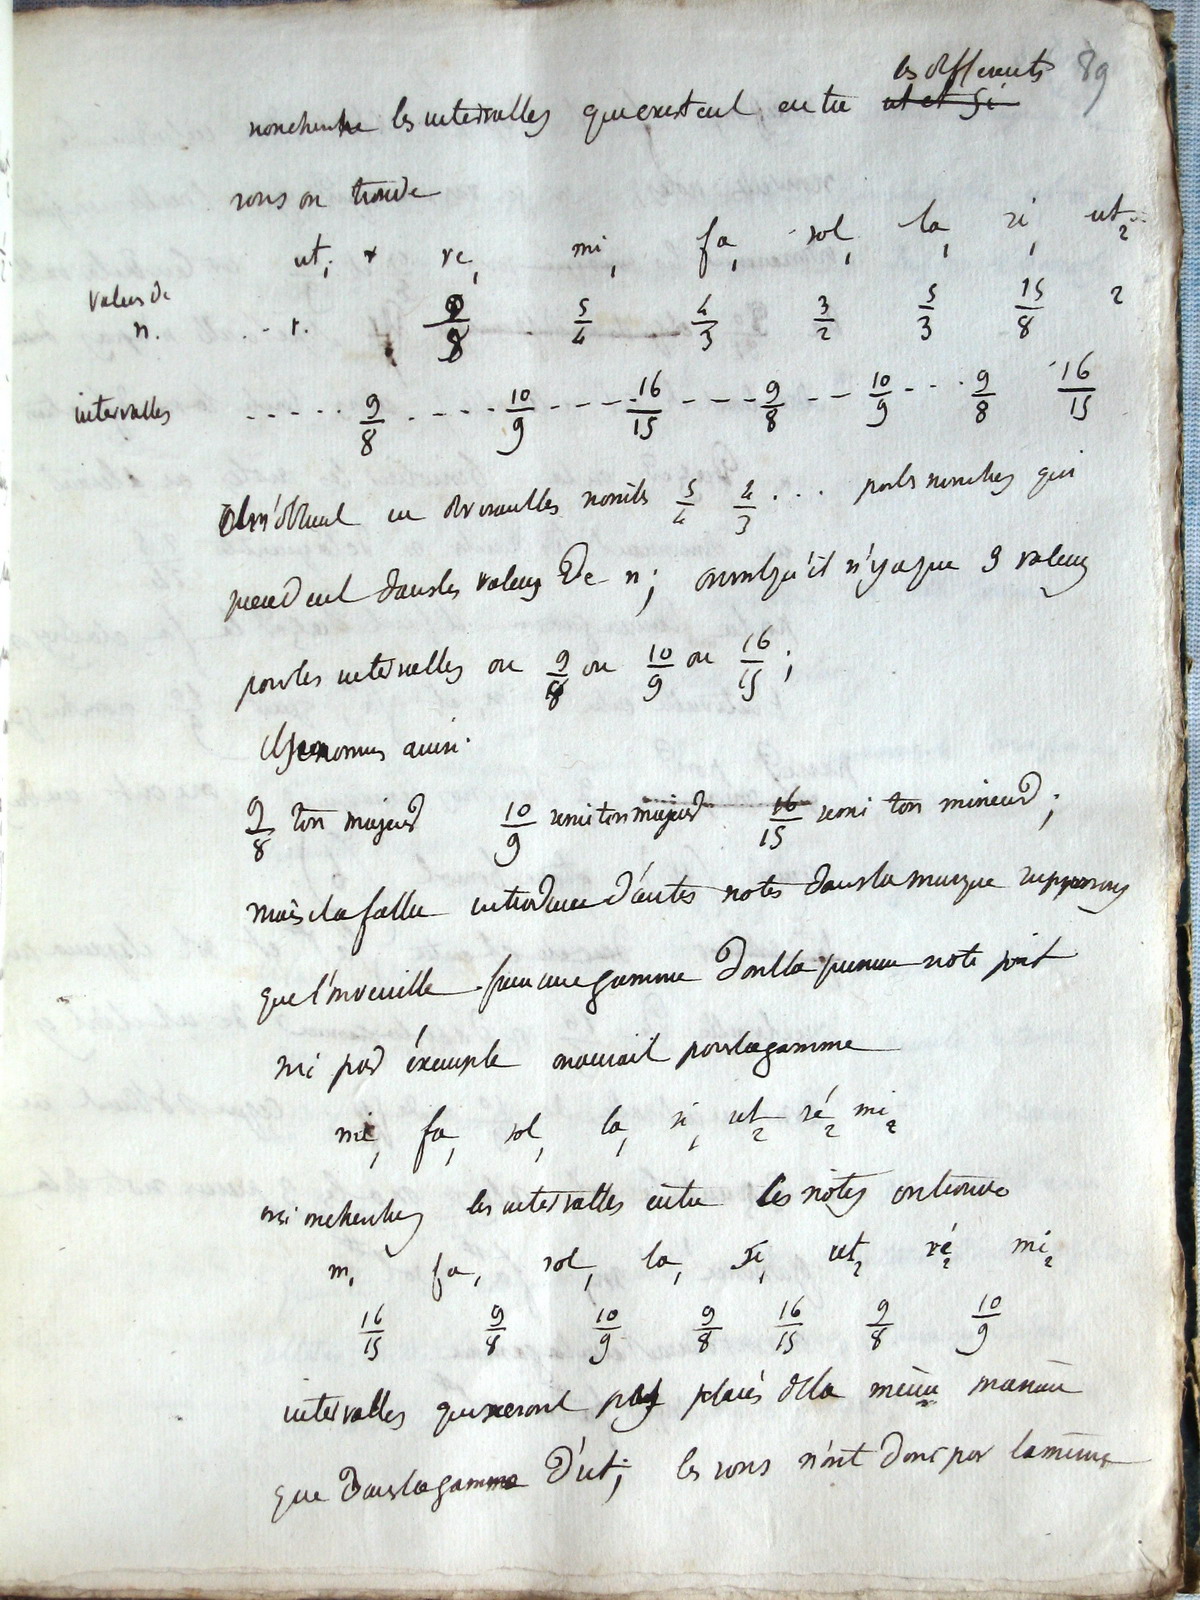 89
les differents
si on cherche les intervalles qui existent entre ut et si
sons on trouve
ut, re, mi, fa, sol, la, si, ut2
valeur de
n. .. 1. 9/8 . 5/4 4/3 3/2 5/3 15/8 2
intervalles ..... 9/8 .... 10/9 ---- 16/15 ---- 9/8 --- 10/9 ... 9/8 16/15
on s'obtient en divisant les nombres 5/4 4/3 ... par les nombres qui
precedent dans les valeurs de n; on voit qu'il n'y a que 3 valeurs
pour les intervalles ou 9/8 ou 10/9 ou 16/15;
ainsi.
9/8 ton majeur 10/9 semi ton majeur 16/15 semi ton mineur;
mais il a fallu introduire d'autres notes dans la musique supposons
que l'on veuille faire une gamme dont la premiere note soit
mi par éxemple on aurait pour la gamme
mi, fa, sol, la, si, ut2 ré2 mi2
or si on cherche les intervalles entre les notes on trouve
m, fa, sol, la, si, ut2 ré2 mi2
16/15 9/8 10/9 9/8 16/15 9/8 10/9
intervalles qui ne seront pas placés de la même manière
que dans la gamme d'ut; les sons n'ont donc pas la même